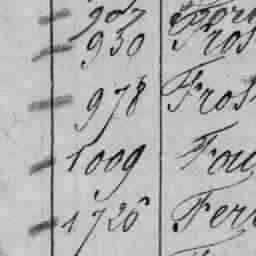 930 Fros
978 Fros
1009 Fou
1726 Ferr